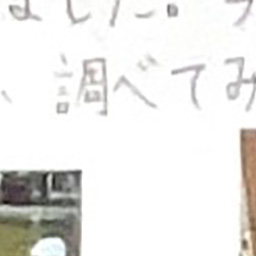 ました。
、調べてみ